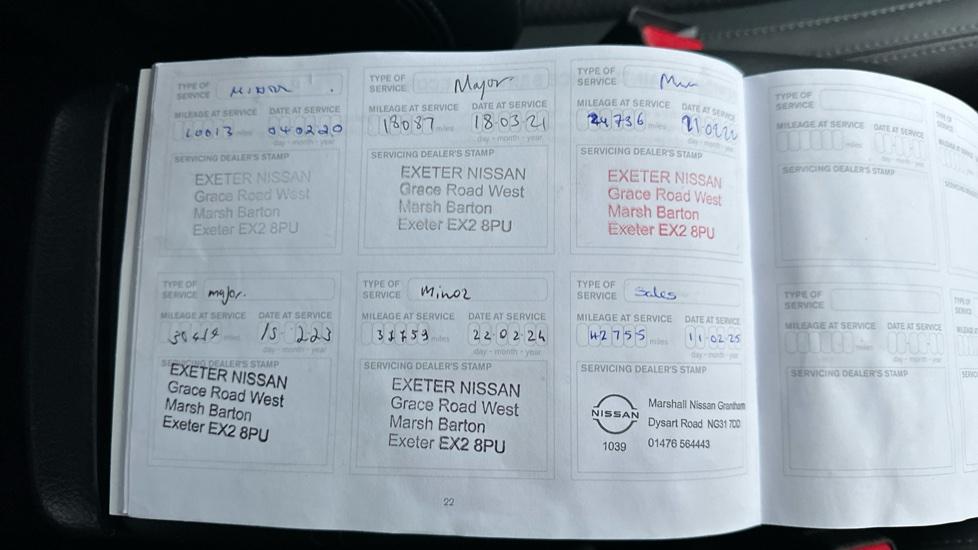 TYPE OF
SERVICE MINOR
MILEAGE AT SERVICE DATE AT SERVICE
10013 miles 040220
day - month - year
SERVICING DEALER'S STAMP
EXETER NISSAN
Grace Road West
Marsh Barton
Exeter EX2 8PU
TYPE OF
SERVICE Major
MILEAGE AT SERVICE DATE AT SERVICE
18087 miles 18-03-21
day - month - year
SERVICING DEALER'S STAMP
EXETER NISSAN
Grace Road West
Marsh Barton
Exeter EX2 8PU
TYPE OF
SERVICE
MILEAGE AT SERVICE DATE AT SERVICE
24736 miles
day - month - year
SERVICING DEALER'S STAMP
EXETER NISSAN
Grace Road West
Marsh Barton
Exeter EX2 8PU
TYPE OF
SERVICE major.
MILEAGE AT SERVICE DATE AT SERVICE
miles
day - month - year
SERVICING DEALER'S STAMP
EXETER NISSAN
Grace Road West
Marsh Barton
Exeter EX2 8PU
TYPE OF
SERVICE Minor
MILEAGE AT SERVICE DATE AT SERVICE
miles 22-02-24
day - month - year
SERVICING DEALER'S STAMP
EXETER NISSAN
Grace Road West
Marsh Barton
Exeter EX2 8PU
TYPE OF
SERVICE Sales
MILEAGE AT SERVICE DATE AT SERVICE
42755 miles 11-02-25
day - month - year
SERVICING DEALER'S STAMP
NISSAN
1039
Marshall Nissan Grantham
Dysart Road NG31 7DD
01476 564443
22
TYPE OF
SERVICE
MILEAGE AT SERVICE DATE AT SERVICE
miles
day - month - year
SERVICING DEALER'S STAMP
TYPE OF
SERVICE
MILEAGE AT SERVICE DATE AT SERVICE
miles
day - month - year
SERVICING DEALER'S STAMP